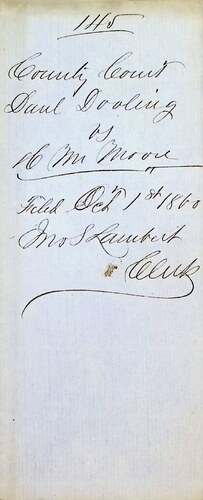 145
County Court
Danl Dooling
vs
H M Moore
Filed Oct 1st 1860
Jno S Lambert
Clerk